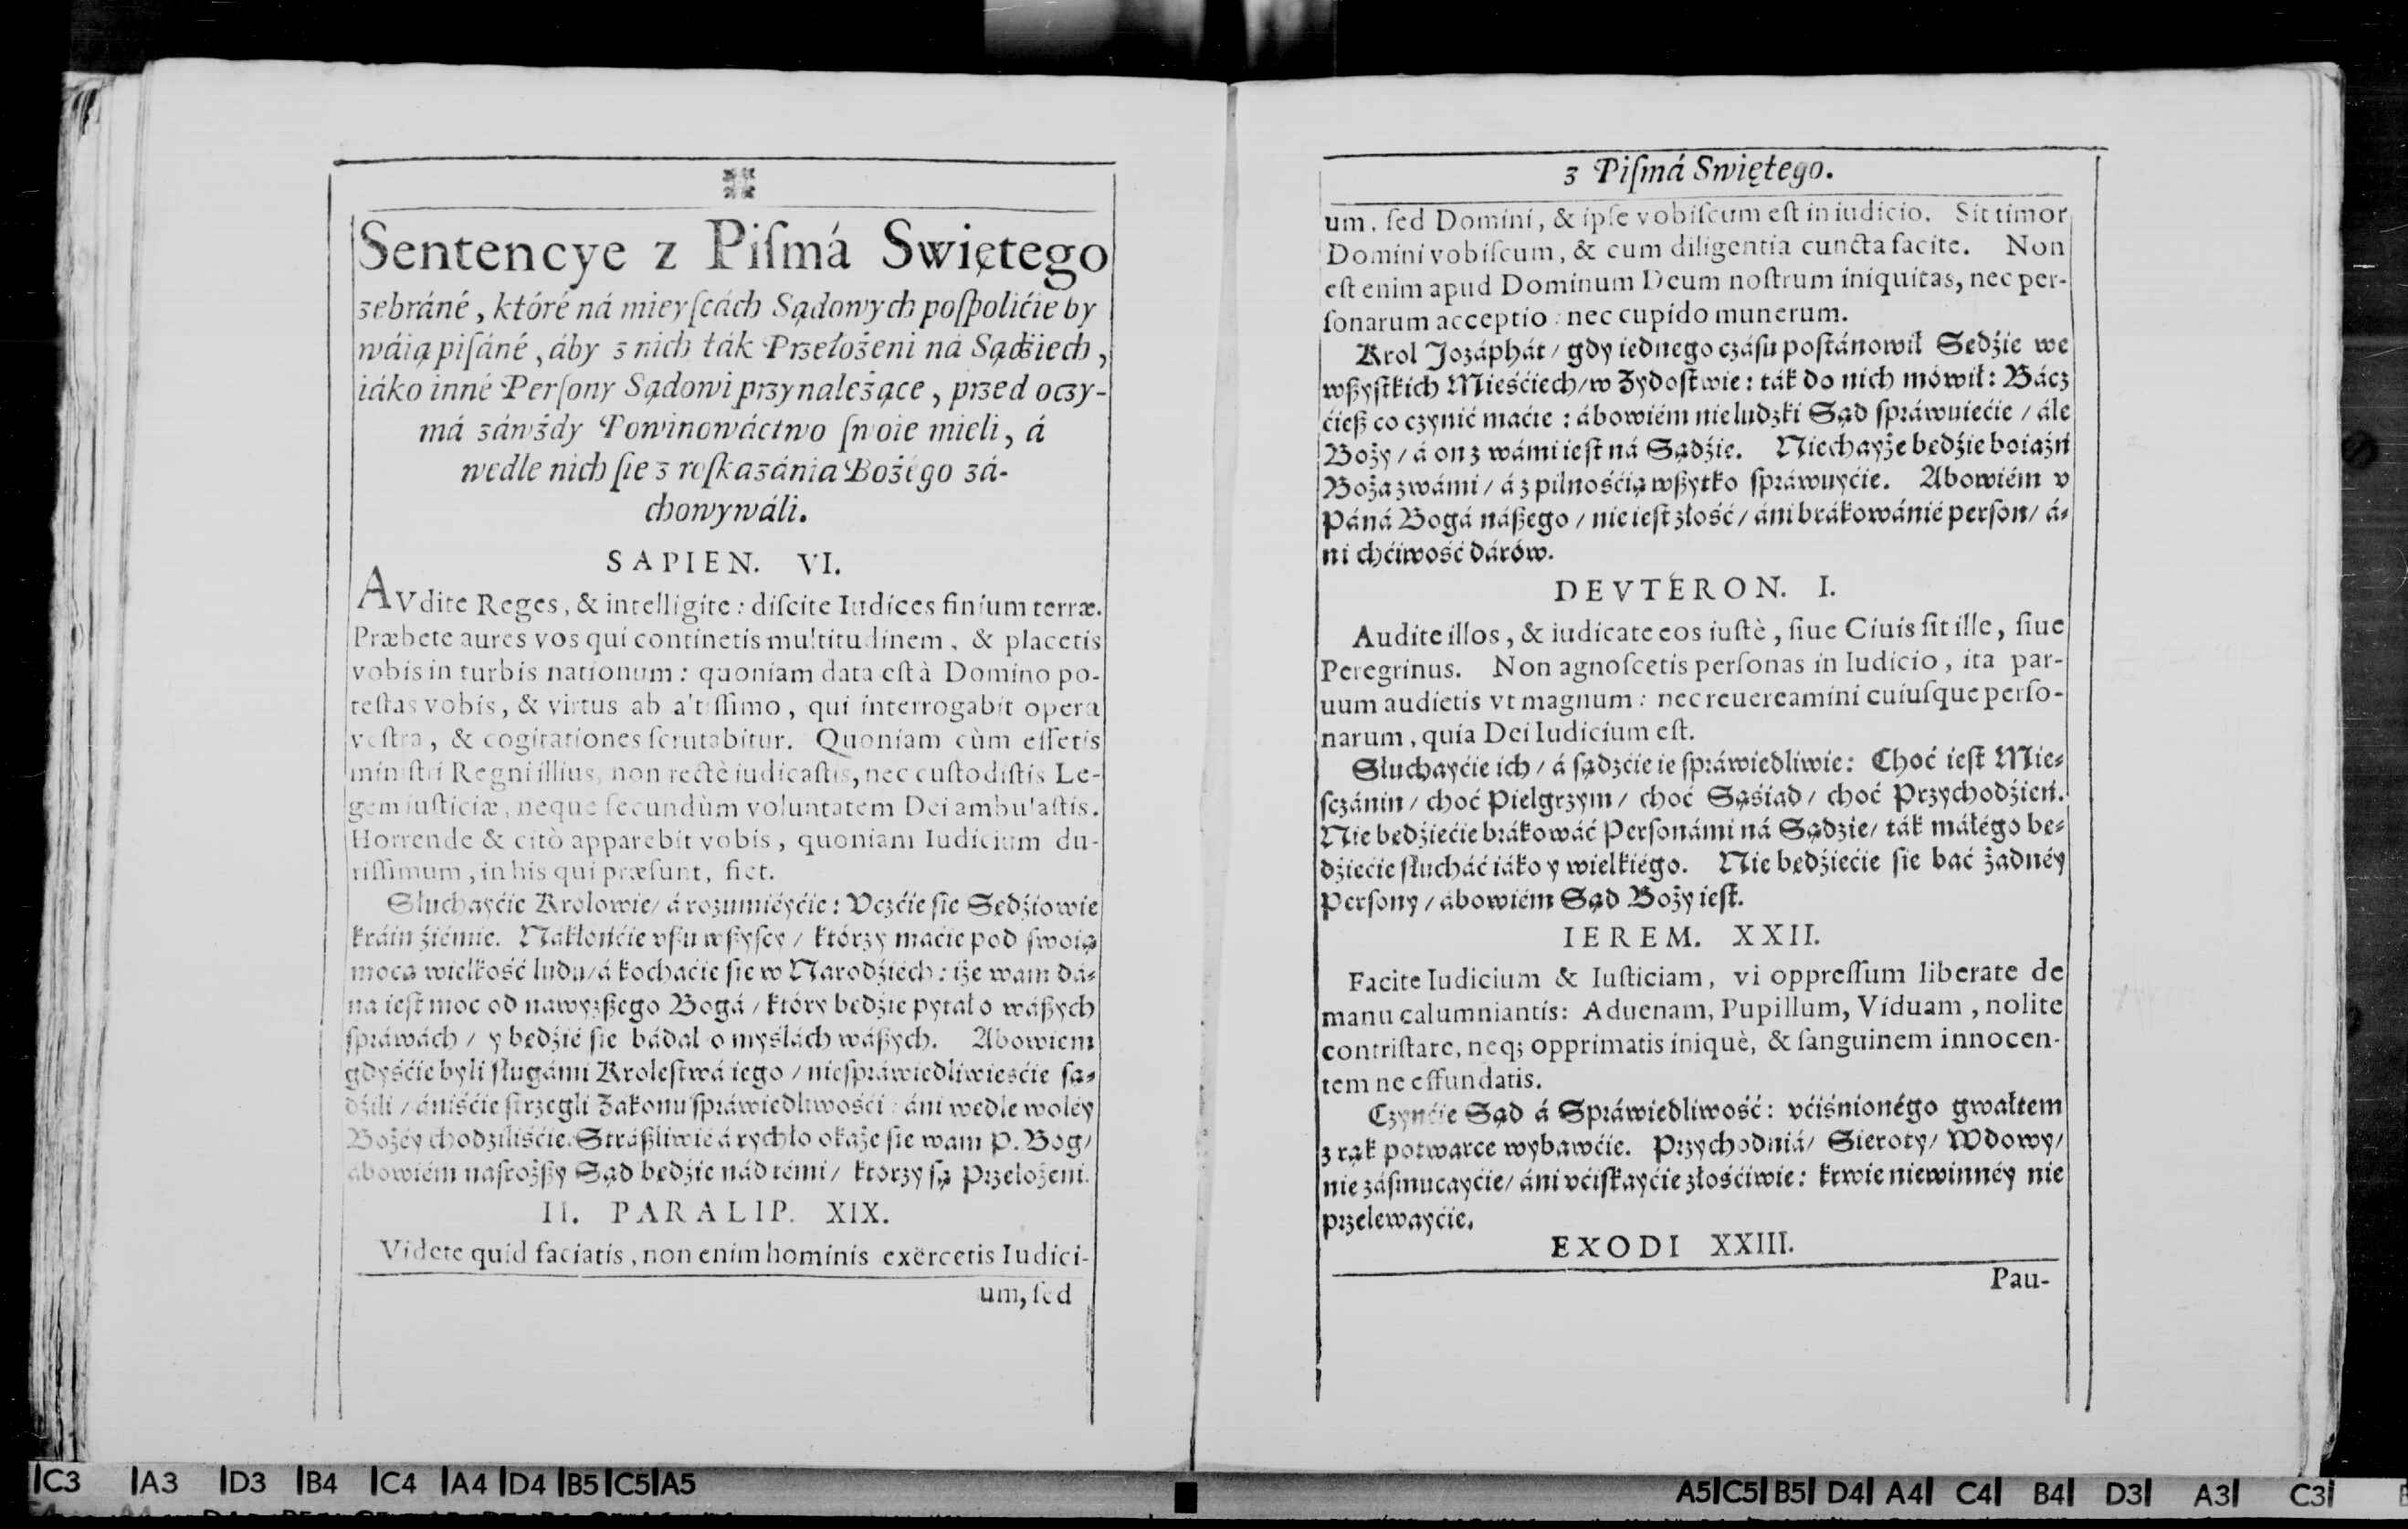 Sentencye z Piſmá Swiętego
zebráné, któré ná mieyſcách Sądowych poſpolićie by
wáią piſáné, áby z nich ták Przełożeni ná Sądźiech,
iáko inné Perſony Sądowi przynależące, przed oczy-
má záwżdy Powinowáctwo ſwoie mieli, á
wedle nich ſie z roſkazánia Bożégo zá-
chowywáli.
SAPIEN. VI.
AVdite Reges, & intelligite: diſcite Iudices finium terræ.
Præbete aures vos qui continetis multitudinem, & placetis
vobis in turbis nationum: quoniam data eſt à Domino po-
teſtas vobis, & virtus ab altiſſimo, qui interrogabit opera
veſtra, & cogitationes ſcrutabitur. Quoniam cùm eſſetis
miniſtri Regni illius, non rectè iudicaſtis, nec cuſtodiſtis Le-
gem iuſticiæ, neque ſecundùm voluntatem Dei ambulaſtis.
Horrende & citò apparebit vobis, quoniam Iudicium du-
riſſimum, in his qui præſunt, fiet.
Słuchayćie Krolowie/ á rozumiéyćie: Vczćie ſie Sędźiowie
kráin źiémie. Nakłońćie vſzu wßyſcy / którzy maćie pod ſwoią
mocą wielkość ludu/ á kochaćie ſie w Narodźiéch: iże wam dá-
na ieſt moc od nawyżßego Bogá / który będźie pytał o wáßych
ſpráwách / y będźié ſie bádał o myślách wáßych. Abowiem
gdyśćie byli ſługámi Kroleſtwá iego / nieſpráwiedliwieśćie ſą-
dźili / ániśćie ſtrzegli Zakonu ſpráwiedliwośći: áni wedle woléy
Bożéy chodziliśćie. Stráßliwie á rychło okaże ſie wam P. Bog/
abowiém naſroższy Sąd będźie nád témi/ ktorzy ſą Przełożeni.
II. PARALIP. XIX.
Videte quid faciatis, non enim hominis exërcetis Iudici-
um, ſed
z Piſmá Swiętego.
um, ſed Domini, & ipſe vobiſcum eſt in iudicio. Sit timor
Domini vobiſcum, & cum diligentia cuncta facite. Non
eſt enim apud Dominum Deum noſtrum iniquitas, nec per-
ſonarum acceptio: nec cupido munerum.
Krol Jozáphát/ gdy iednego czáſu poſtánowił Sędźie we
wßyſtkich Mieśćiech/ w Żydoſtwie: ták do nich mówił: Bácz
ćieß co czynić maćie: ábowiém nie ludzki Sąd ſpráwuiećie / ále
Boży/ á on z wámi ieſt ná Sądźie. Niechayże będźie boiaźń
Boża z wámi/ á z pilnośćią wßytko ſpráwuyćie. Abowiém v
Páná Bogá náßego / nie ieſt złość/ áni brákowánié perſon/ á-
ni chćiwość dárów.
DEVTERON. I.
Audite illos, & iudicate eos iuſtè, ſiue Ciuis ſit ille, ſiue
Peregrinus. Non agnoſcetis perſonas in Iudicio, ita par-
uum audietis vt magnum: nec reuereamini cuiuſque perſo-
narum, quia Dei Iudicium eſt.
Słuchayćie ich / á ſądzćie ie ſpráwiedliwie: Choć ieſt Mie-
ſczánin/ choć Pielgrzym/ choć Sąśiad/ choć Przychodźień.
Nie będźiećie brákowáć Perſonámi ná Sądzie/ ták małégo bę-
dźiećie ſłucháć iáko y wielkiégo. Nie będźiećie ſie bać żadnéy
Perſony / abowiém Sąd Boży ieſt.
IEREM. XXII.
Facite Iudicium & Iuſticiam, vi oppreſſum liberate de
manu calumniantis: Aduenam, Pupillum, Viduam, nolite
contriſtare, neq; opprimatis iniquè, & ſanguinem innocen-
tem ne effundatis.
Czyńćie Sąd á Spráwiedliwość: vćiśnionégo gwałtem
z rąk potwarce wybawćie. Przychodniá/ Sieroty/ Wdowy/
nie záſmucayćie/ áni vćiſkayćie złośćiwie: krwie niewinnéy nie
przelewayćie.
EXODI XXIII.
Pau-
C3 A3 D3 B4 C4 A4 D4 B5 C5 A5
A5 C5 B5 D4 A4 C4 B4 D3 A3 C3